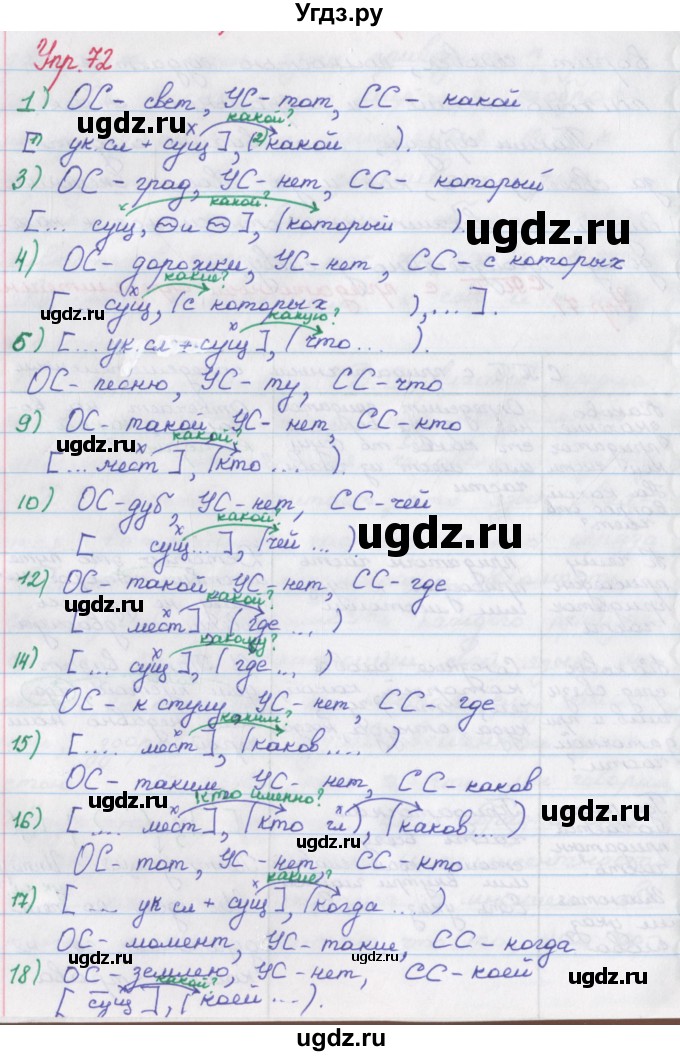 Угдз.ру
Упр. 72
1) ОС - свет, УС - тот, СС - какой
какой?
[1) ук. сл + сущ ], (2) какой ).
3) ОС - град, УС - нет, СС - который
какой?
[... сущ, и ], (который ).
4) ОС - дорожки, УС - нет, СС - с которых
какие?
[ сущ, (с которых ), ... ].
какую?
5) [... ук. сл + сущ ], (что ... ).
ОС - песню, УС - ту, СС - что
9) ОС - такой, УС - нет, СС - кто
какой?
[... мест ], (кто ... ).
10) ОС - дуб, УС - нет, СС - чей
какой?
[ сущ... ], (чей ... )
12) ОС - такой, УС - нет, СС - где
какой?
[ мест ] (где ... )
какому?
14) [... сущ ], (где ... )
ОС - к стулу, УС - нет, СС - где
каким?
15) [.... мест ], (каков .... )
ОС - таким, УС - нет, СС - каков
кто именно?
16) [.... мест ], (кто гл ), (каков ... )
ОС - тот, УС - нет СС - кто
какие?
17) [ ... ук. сл + сущ ], (когда ... )
ОС - момент, УС - такие, СС - когда
18) ОС - землею, УС - нет, СС - коей
какой?
[ сущ ], (коей ... ).
ugdz.ru
ugdz.ru
ugdz.ru
ugdz.ru
ugdz.ru
ugdz.ru
ugdz.ru
ugdz.ru
ugdz.ru
ugdz.ru
ugdz.ru
ugdz.ru
ugdz.ru
ugdz.ru